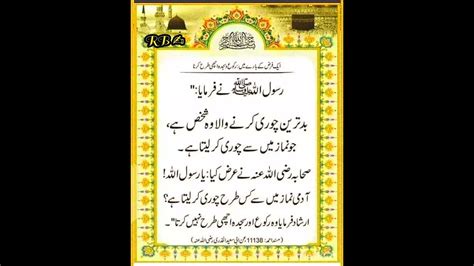 RB
بسم اللہ الرحمن الرحیم
ایک فرض کے بارے میں: رکوع و سجدہ اچھی طرح کرنا
رسول اللہ ﷺ نے فرمایا:"
بدترین چوری کرنے والا وہ شخص ہے،
جو نماز میں سے چوری کرلیتا ہے۔
صحابہ رضی اللہ عنہ نے عرض کیا: یا رسول اللہ!
آدمی نماز میں سے کس طرح چوری کرلیتا ہے؟
ارشاد فرمایا وہ رکوع اور سجدہ اچھی طرح نہیں کرتا"۔
(مسند احمد: 11138، عن ابی سعید الخدری رضی اللہ عنہ)